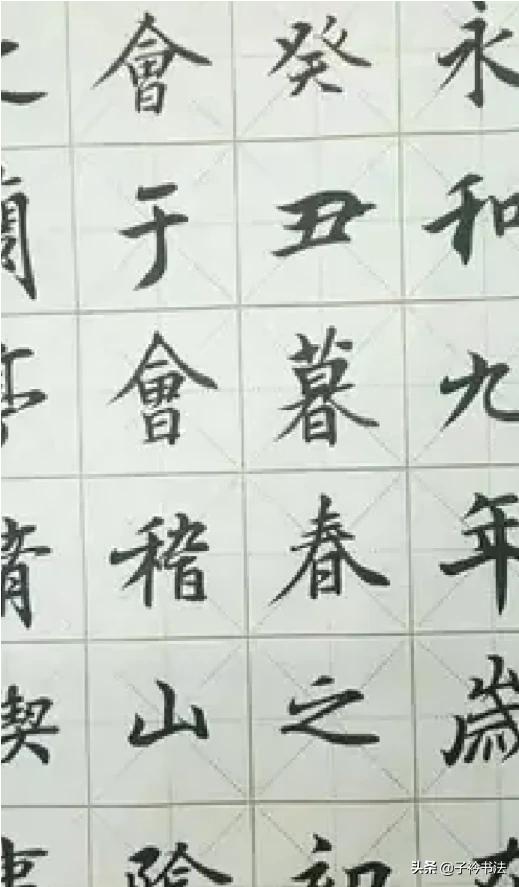 永和九年歲在
癸丑暮春之初
會于會稽山陰
之蘭亭脩禊事
头条 @子衿书法